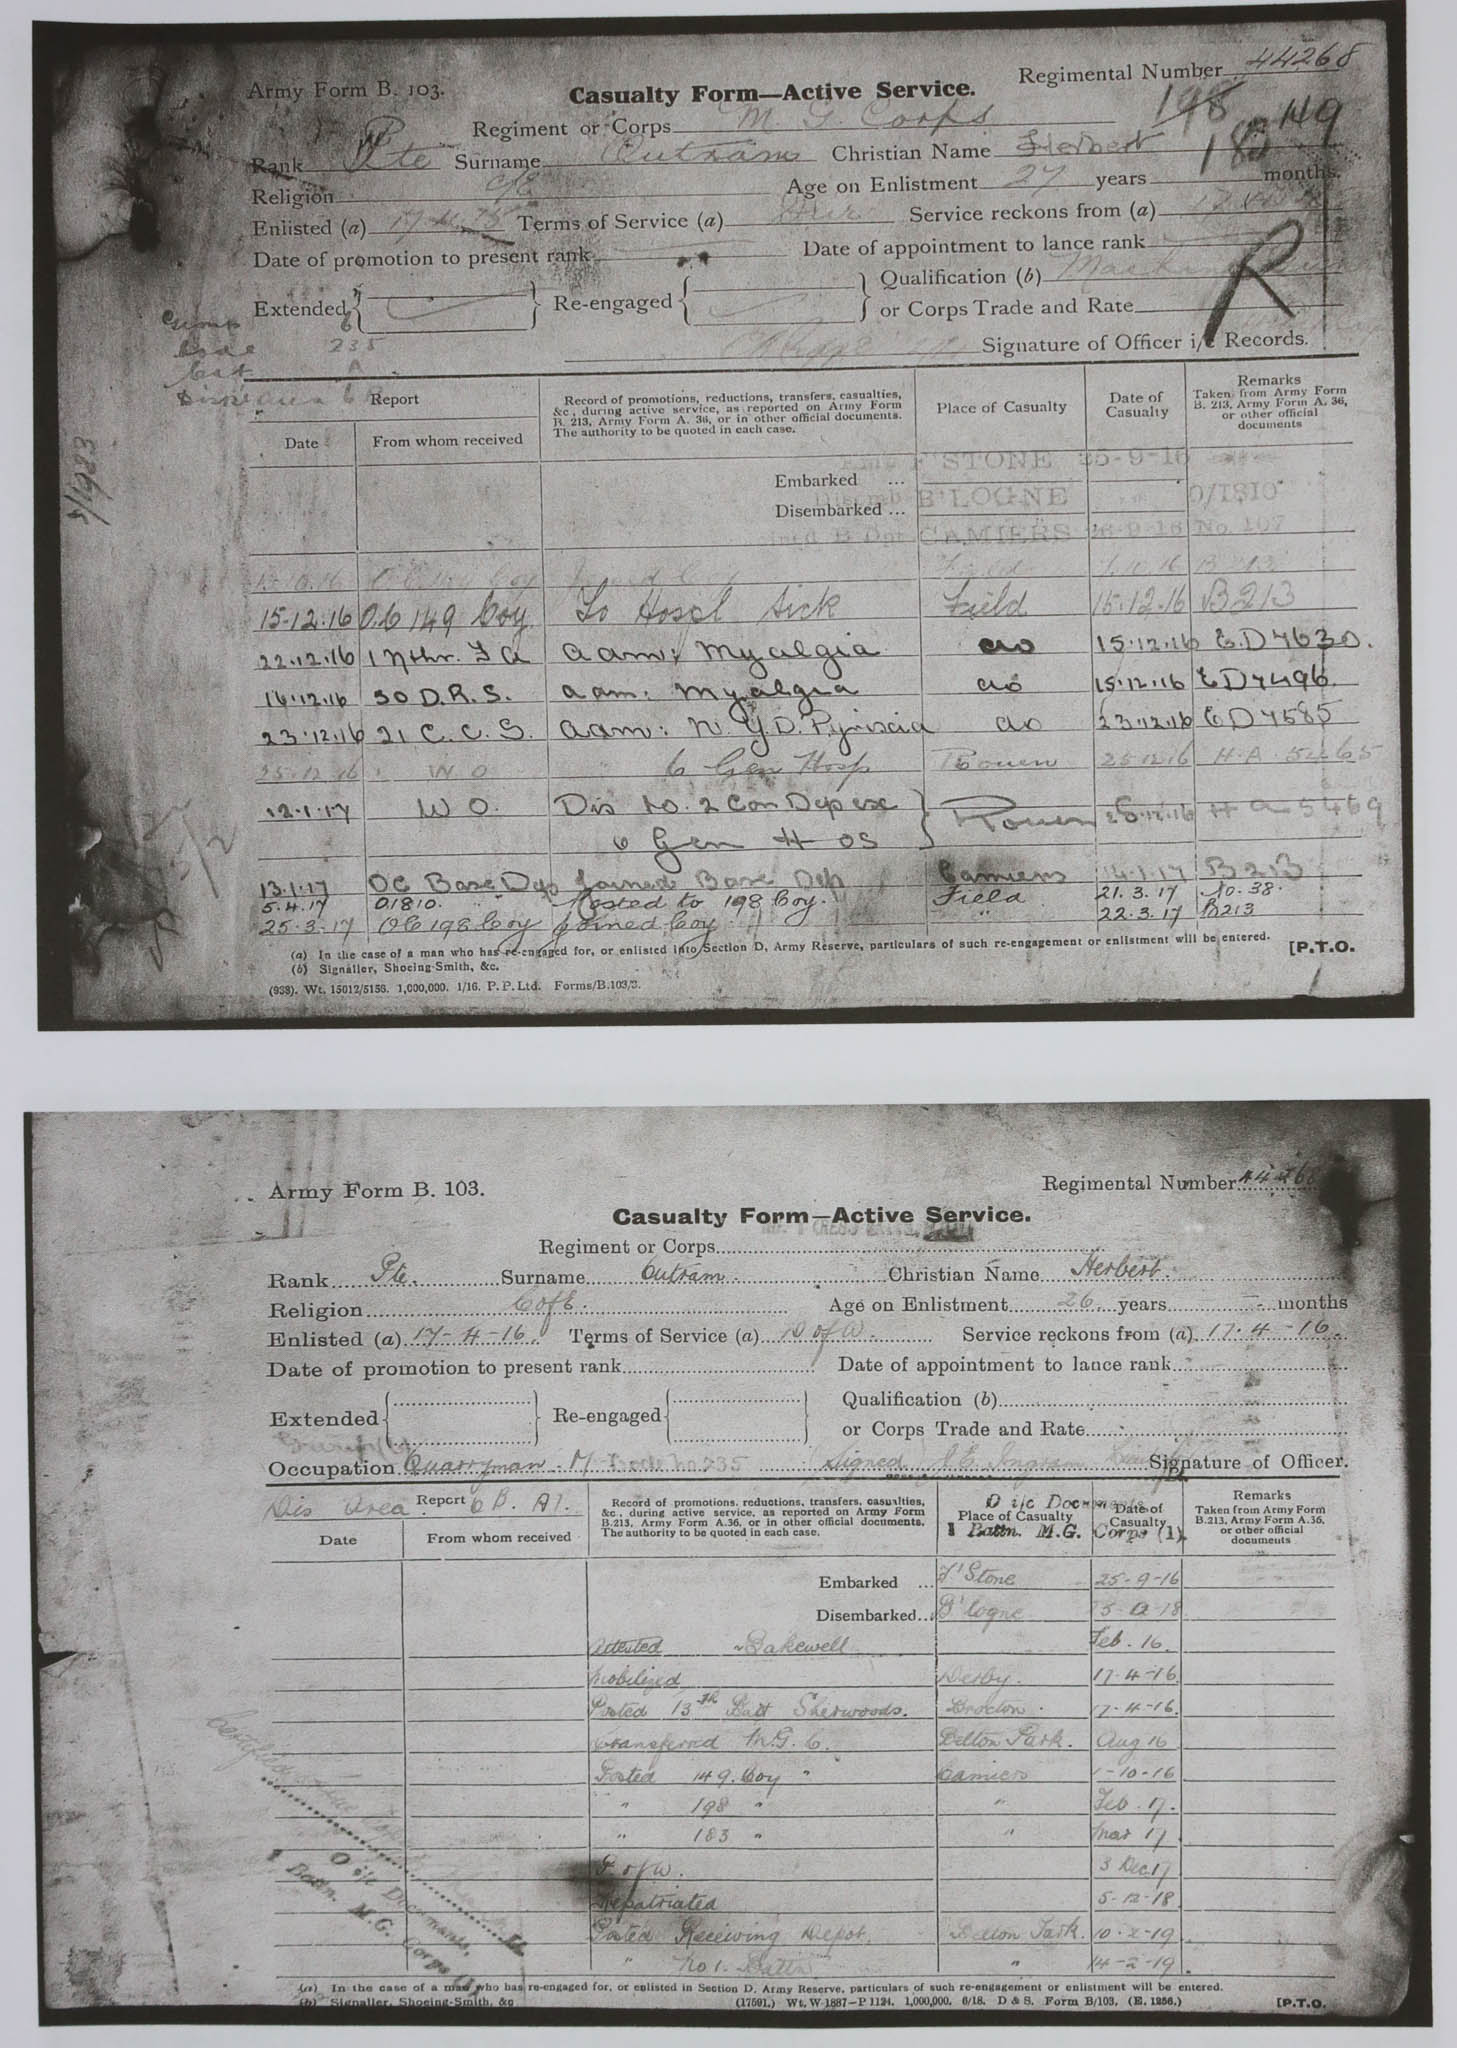 Army Form B. 103.
Casualty Form—Active Service.
Regimental Number 44268
Regiment or Corps M. G. Corps
198
183 149
Rank Pte Surname Outram Christian Name Herbert
Religion C/E Age on Enlistment 27 years months.
Enlisted (a) Terms of Service (a) Service reckons from (a)
Date of promotion to present rank Date of appointment to lance rank
R
Extended Re-engaged Qualification (b)
or Corps Trade and Rate
Signature of Officer i/c Records.
Group 6
235
A
Report
Date From whom received
Record of promotions, reductions, transfers, casualties, &c., during active service, as reported on Army Form B. 213, Army Form A. 36, or in other official documents. The authority to be quoted in each case.
Place of Casualty
Date of Casualty
Remarks Taken from Army Form B. 213, Army Form A. 36, or other official documents
Embarked ... F'STONE 25-9-16
Disembarked ... B'LOGNE O/1810
CAMIERS 26-9-16 No. 107
Joined Coy Field B213
15.12.16 O.C 149 Coy To Hospl Sick Field 15.12.16 B213
22.12.16 1 Nthr. F A adm: Myalgia do 15.12.16 E.D 7630.
16.12.16 50 D.R.S. adm: Myalgia do 15.12.16 ED7496
23.12.16 21 C.C.S. adm: N.Y.D. Pyrixcia do 23.12.16 ED7585
25.12.16 W O " 6 Gen Hosp Rouen 25.12.16 H.A. 5465
12.1.17 W O. Dis to. 2 Con Dep ex Rouen H A 5469
6 Gen Hos
13.1.17 OC Base Dep Joined Base Dep Camiers 14.1.17 B213
5.4.17 O1810. Posted to 198 Coy. Field 21.3.17 No. 38.
25.3.17 OC 198 Coy Joined Coy " 22.3.17 B213
(a) In the case of a man who has re-engaged for, or enlisted into Section D, Army Reserve, particulars of such re-engagement or enlistment will be entered. [P.T.O.
(b) Signaller, Shoeing-Smith, &c.
(938). Wt. 15012/5156. 1,000,000. 1/16. P. P. Ltd. Forms/B.103/3.
Army Form B. 103.
Regimental Number 44268
Casualty Form—Active Service.
Regiment or Corps
Rank Pte. Surname Outram. Christian Name Herbert.
Religion CofE. Age on Enlistment 26 years — months
Enlisted (a) 17-4-16. Terms of Service (a) D of W. Service reckons from (a) 17.4-16.
Date of promotion to present rank Date of appointment to lance rank
Extended Re-engaged Qualification (b)
or Corps Trade and Rate
Occupation Quarryman. M Trade No 235 Signed Signature of Officer.
Dis Area 6B. A1.
Report
Date From whom received
Record of promotions, reductions, transfers, casualties, &c., during active service, as reported on Army Form B.213, Army Form A.36, or in other official documents. The authority to be quoted in each case.
O i/c Documents
Place of Casualty
1 Battn. M.G. Corps (1).
Date of Casualty
Remarks Taken from Army Form B.213, Army Form A.36, or other official documents
Embarked ... F'Stone 25-9-16
Disembarked... B'logne
Attested Bakewell Feb. 16.
Mobilized Derby. 17-4-16
Posted 13th Batt Sherwoods. Brocton. 17-4-16.
Transferred M.G.C. Belton Park. Aug 16
Posted 149. Coy " Camiers 1-10-16
" 198 " " Feb. 17.
" 183 " " Mar 17
P of W. 3 Dec. 17
Repatriated 5-12-18
Posted Receiving Depot. Belton Park. 10-2-19
" No 1. Battn " 14-2-19.
O i/c Documents,
1 Battn. M.G. Corps
(a) In the case of a man who has re-engaged for, or enlisted in Section D, Army Reserve, particulars of such re-engagement or enlistment will be entered.
(b) Signaller, Shoeing-Smith, &c (17591.) Wt. W 1887—P 1124. 1,000,000. 6/18. D & S. Form B/103. (E. 1256.) [P.T.O.